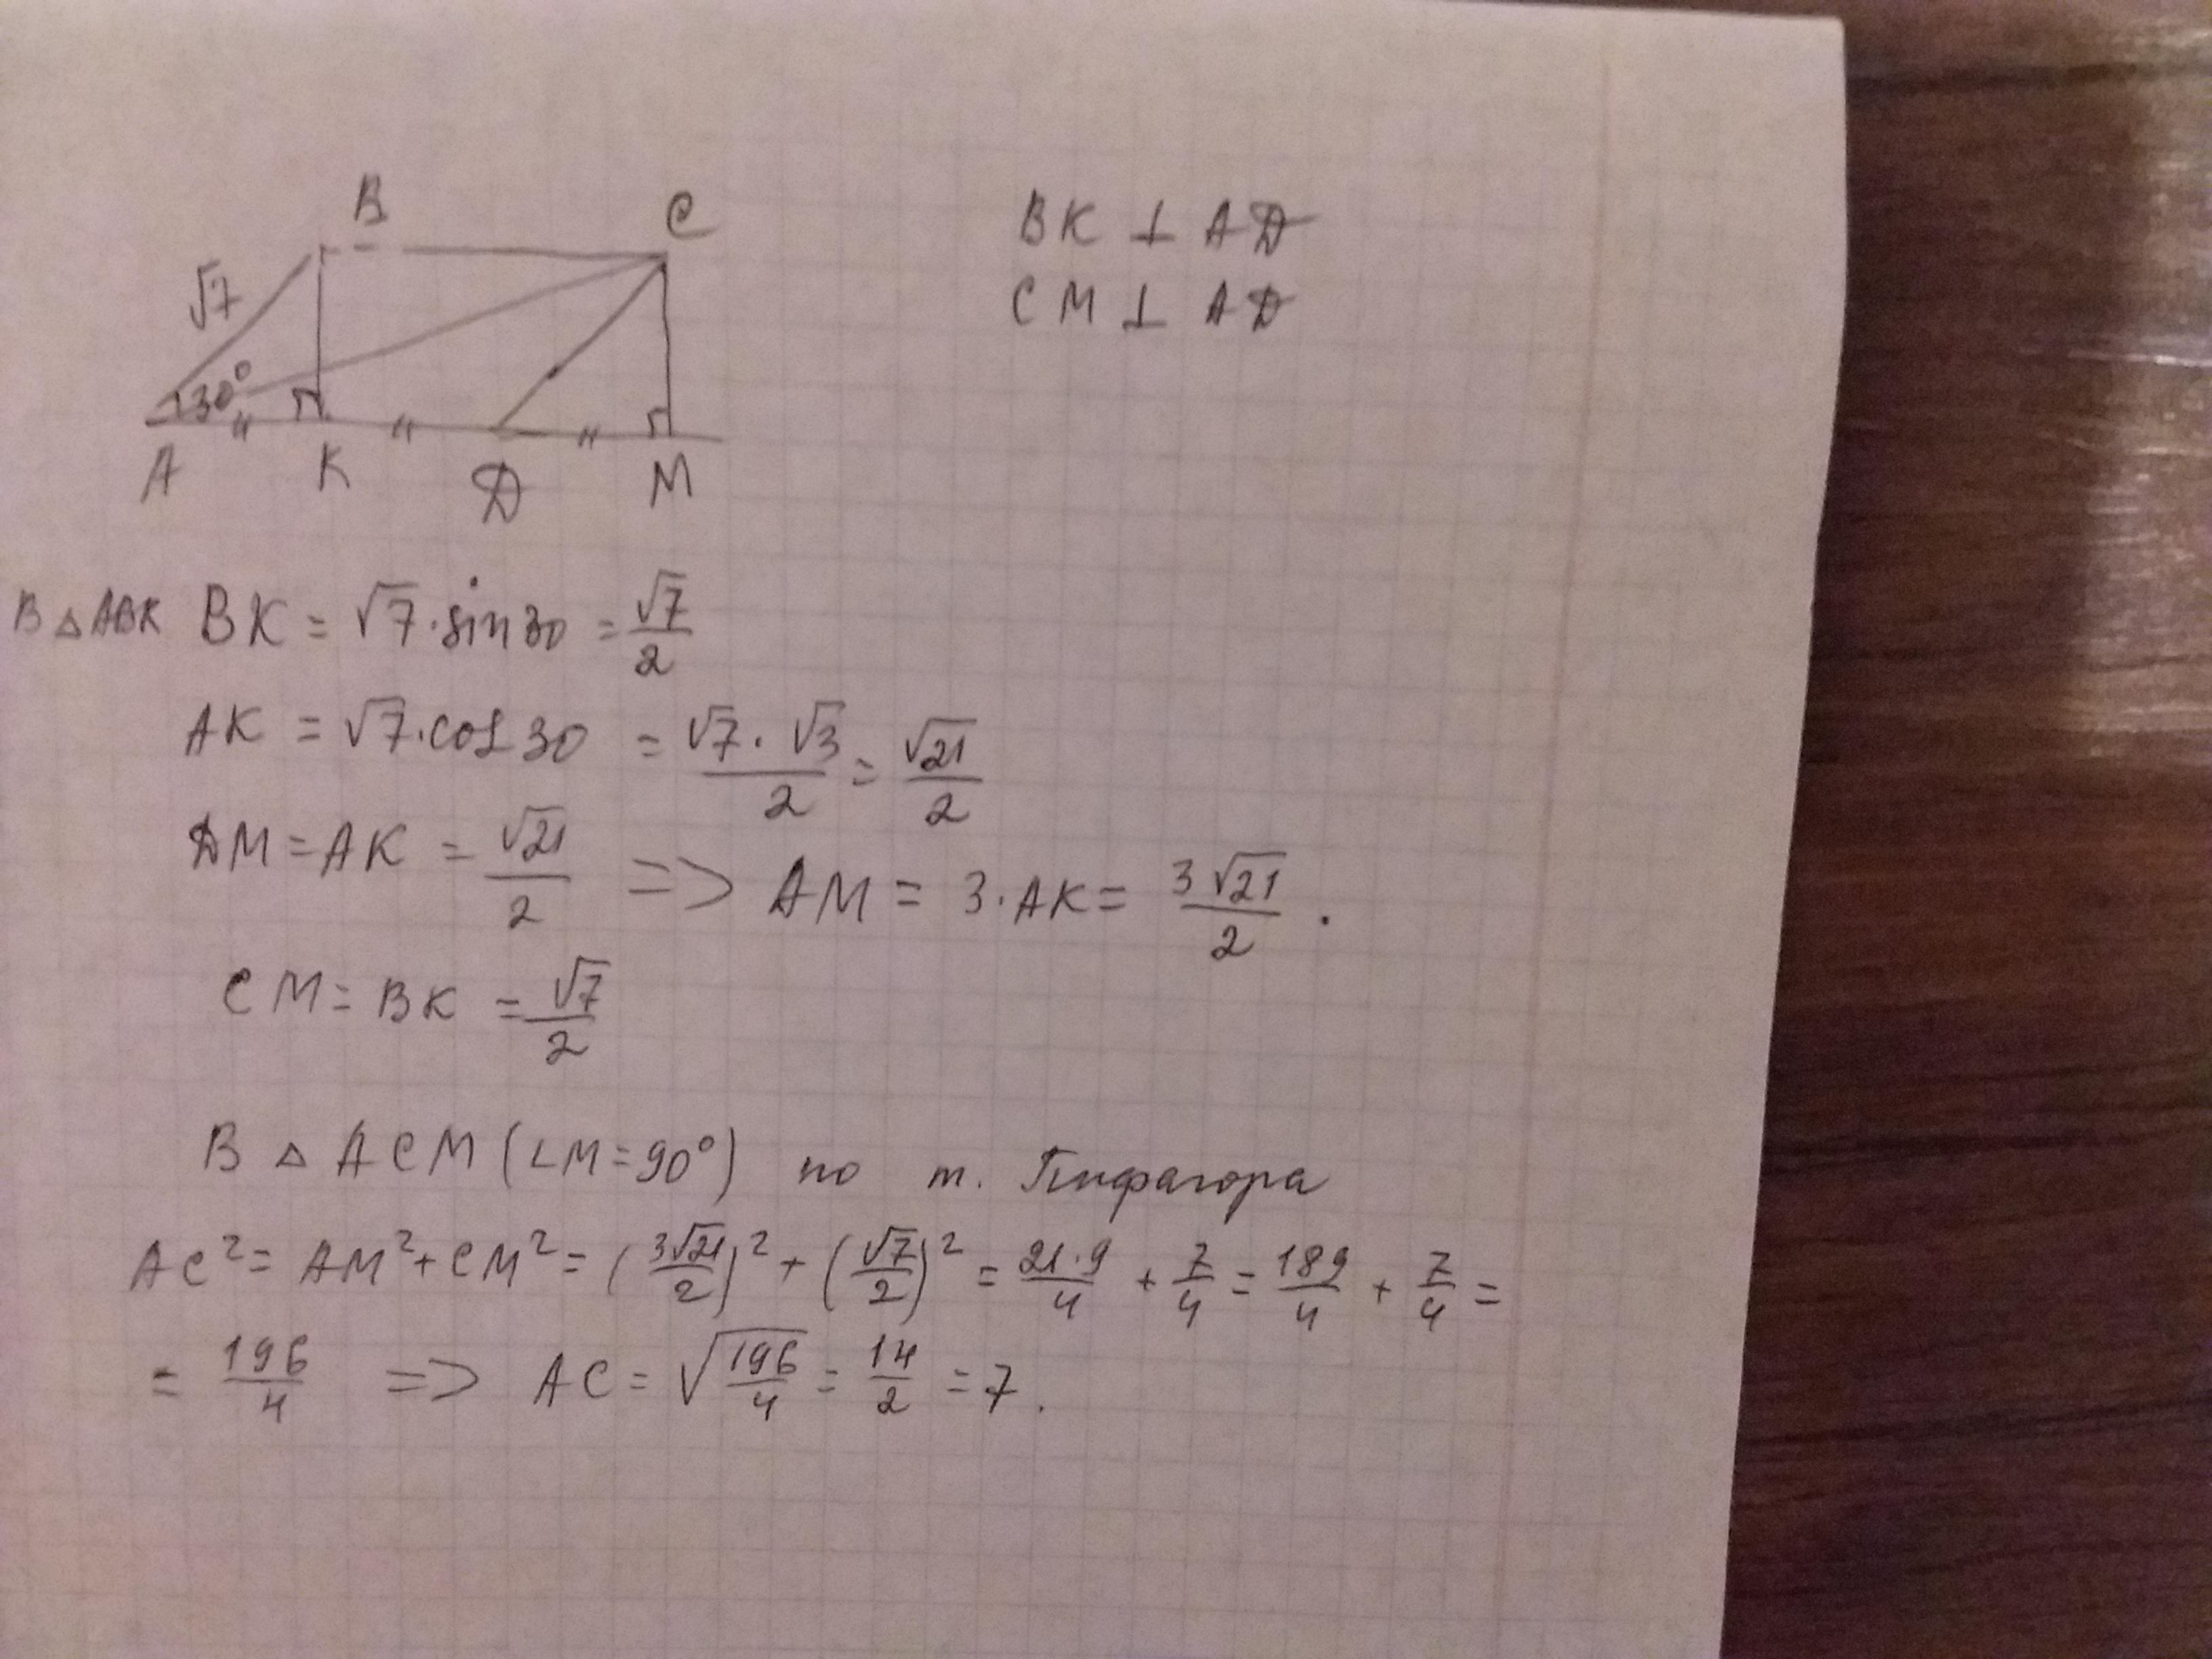 B C
√7
30°
A K D M
BK ⊥ AD
CM ⊥ AD
В △ ABK BK = √7·sin30 = √7/2
AK = √7·cos30 = √7·√3/2 = √21/2
DM = AK = √21/2 => AM = 3·AK = 3√21/2.
CM = BK = √7/2
В △ ACM (∠M=90°) по т. Пифагора
AC² = AM² + CM² = (3√21/2)² + (√7/2)² = 21·9/4 + 7/4 = 189/4 + 7/4 =
= 196/4 => AC = √196/4 = 14/2 = 7.